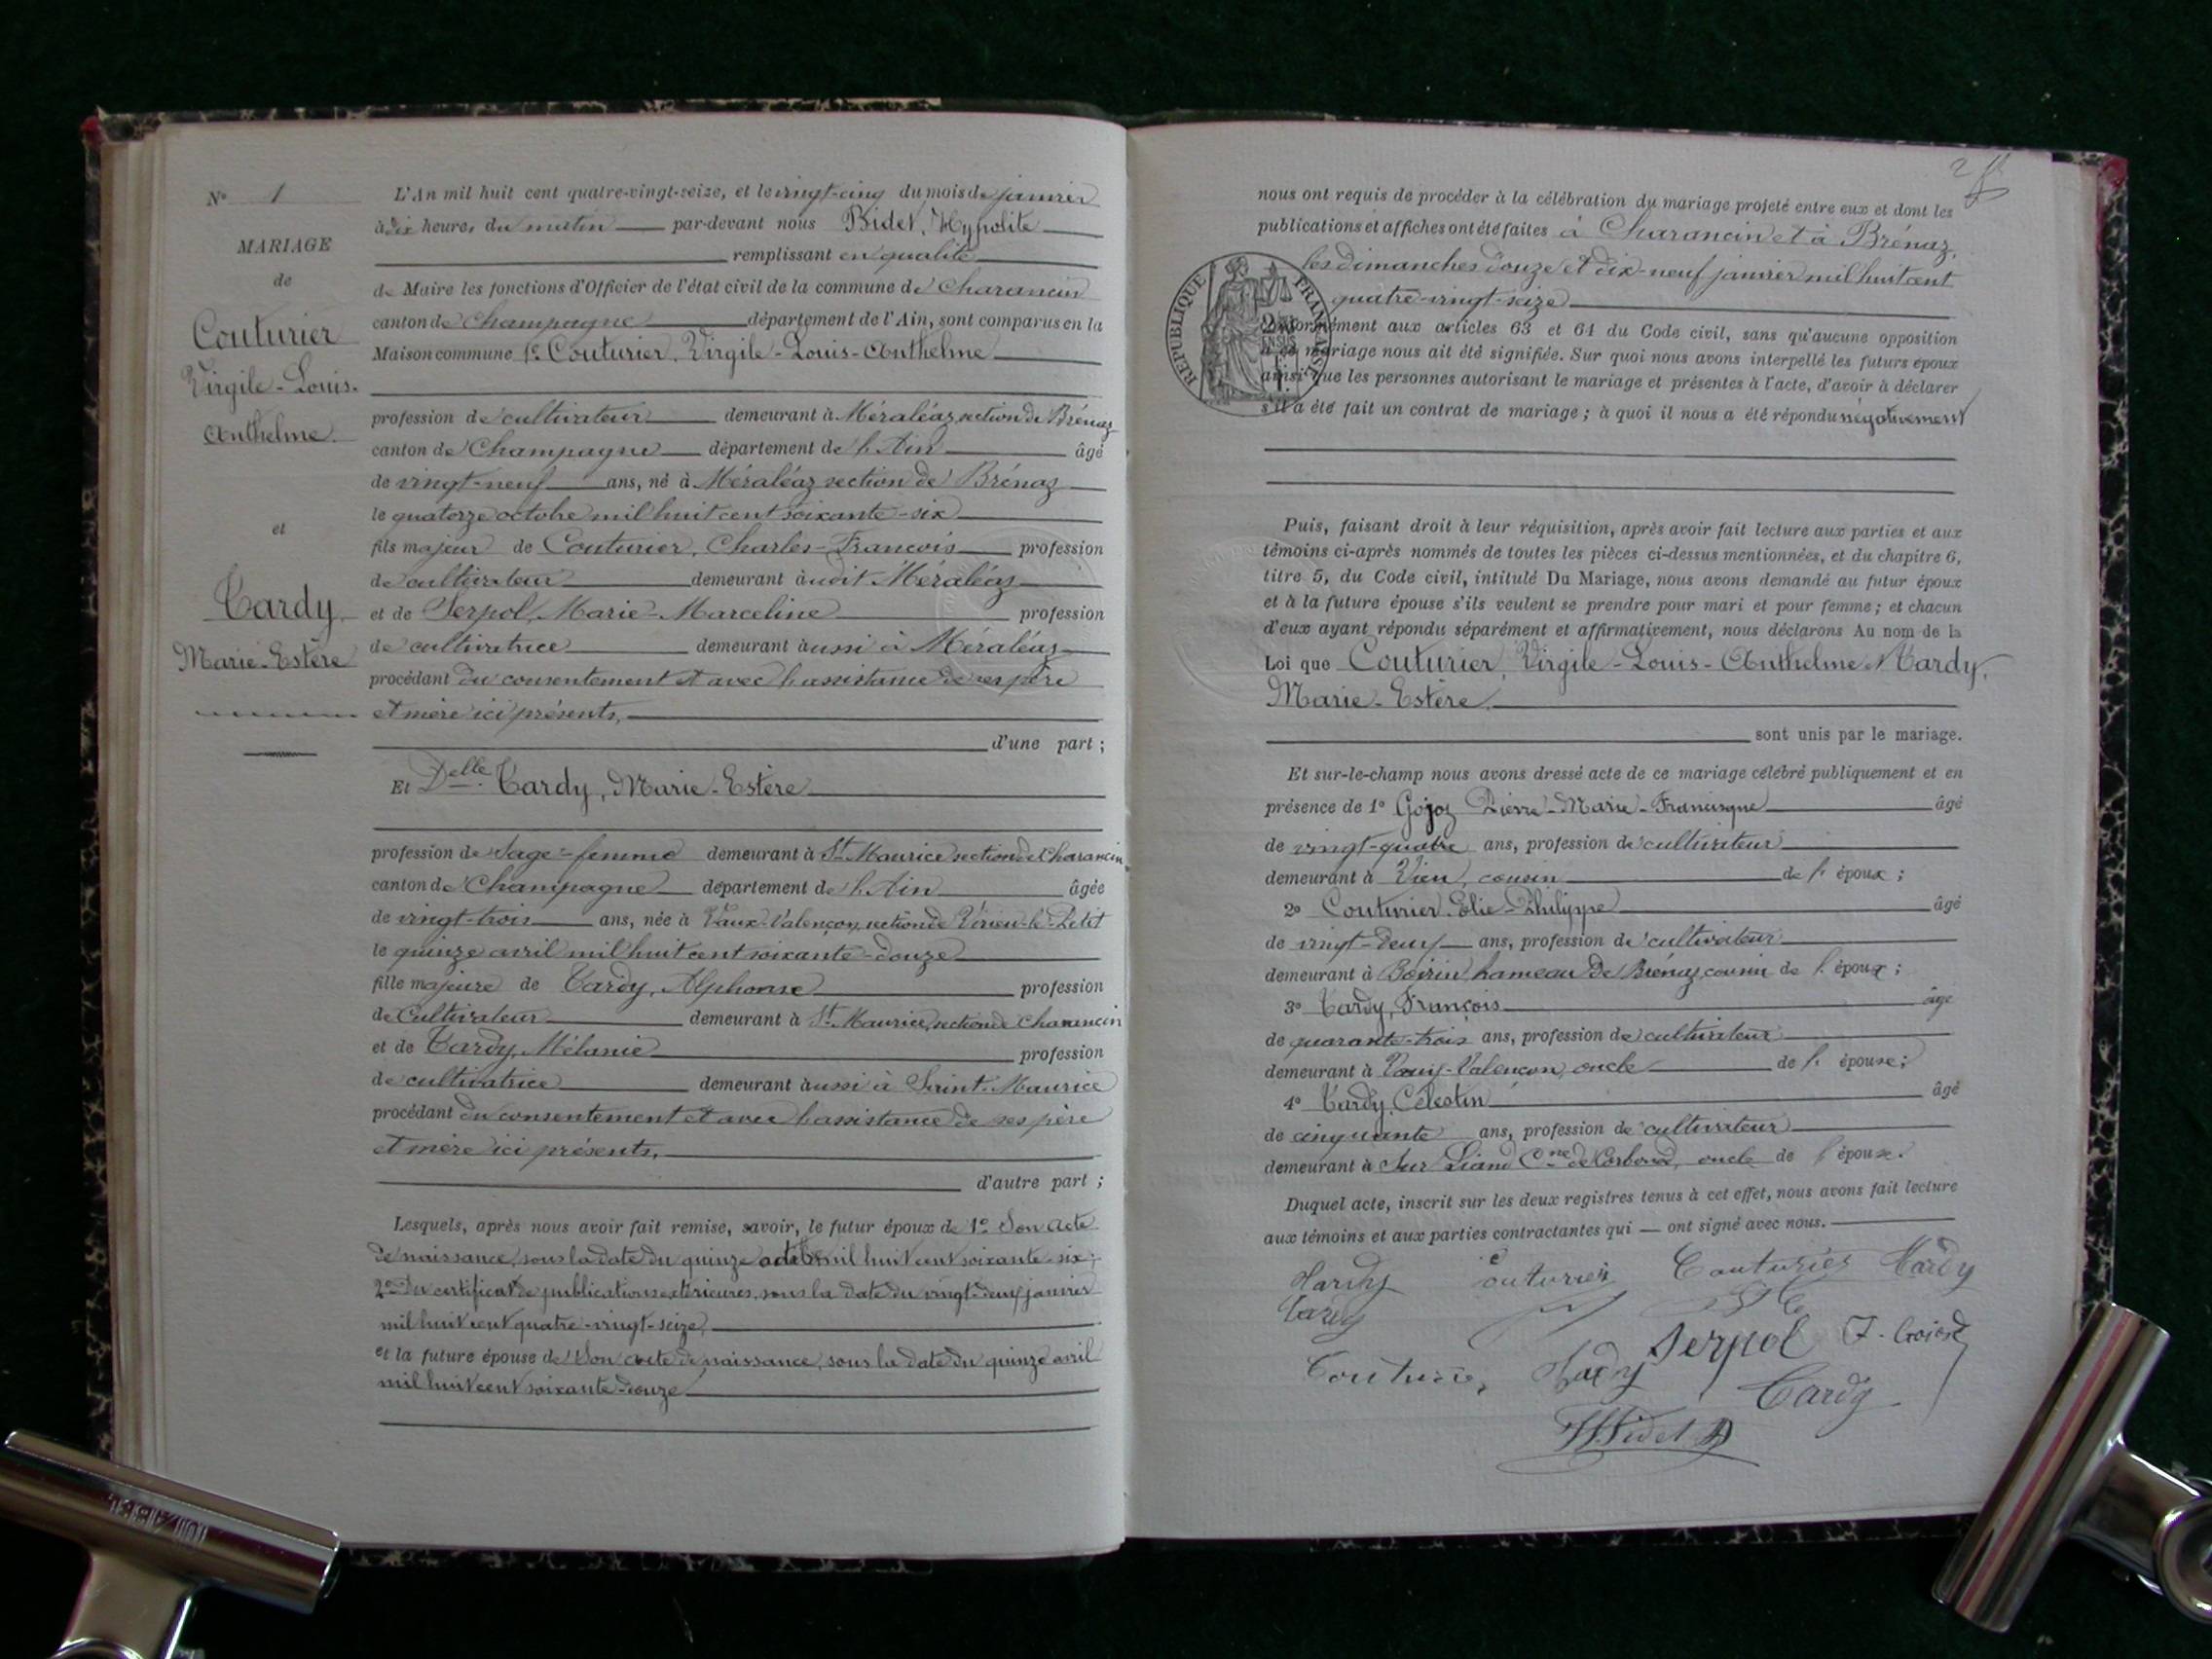 N° 1
MARIAGE
de
Couturier
Virgile-Louis-
Anthelme.
et
Tardy,
Marie-Estère
L'An mil huit cent quatre-vingt-seize, et le vingt-cinq du mois de janvier
à dix heures du matin par-devant nous Bidet, Hypolite
remplissant en qualité
de Maire les fonctions d'Officier de l'état civil de la commune de Charancin
canton de Champagne département de l'Ain, sont comparus en la
Maison commune 1° Couturier, Virgile-Louis-Anthelme
profession de cultivateur demeurant à Méraléaz, section de Brénaz
canton de Champagne département de l'Ain âgé
de vingt-neuf ans, né à Méraléaz section de Brénaz
le quatorze octobre mil huit cent soixante-six
fils majeur de Couturier, Charles-François profession
de cultivateur demeurant àudit Méraléaz
et de Serpol, Marie-Marceline profession
de cultivatrice demeurant àussi à Méraléaz
procédant du consentement et avec l'assistance de ses père
et mère ici présents,
d'une part ;
Et Delle Tardy, Marie-Estère
profession de Sage-femme demeurant à St Maurice section de Charancin
canton de Champagne département de l'Ain âgée
de vingt-trois ans, née à Vaux-Valençon, section de Virieu-le-Petit
le quinze avril mil huit cent soixante-douze
fille majeure de Tardy, Alphonse profession
de Cultivateur demeurant à St Maurice, section de Charancin
et de Tardy, Mélanie profession
de cultivatrice demeurant àussi à Saint-Maurice
procédant du consentement et avec l'assistance de ses père
et mère ici présents,
d'autre part ;
Lesquels, après nous avoir fait remise, savoir, le futur époux de 1° Son acte
de naissance, sous la date du quinze octobre mil huit cent soixante-six;
2° Du certificat de publications extérieures, sous la date du vingt-deux janvier
mil huit cent quatre-vingt-seize,
et la future épouse de Son acte de naissance, sous la date du quinze avril
mil huit cent soixante-douze
2
nous ont requis de procéder à la célébration du mariage projeté entre eux et dont les
publications et affiches ont été faites à Charancin et à Brénaz,
les dimanches douze et dix-neuf janvier mil huit cent
quatre-vingt-seize
RÉPUBLIQUE FRANÇAISE
Conformément aux articles 63 et 64 du Code civil, sans qu'aucune opposition
à ce mariage nous ait été signifiée. Sur quoi nous avons interpellé les futurs époux
ainsi que les personnes autorisant le mariage et présentes à l'acte, d'avoir à déclarer
s'il a été fait un contrat de mariage ; à quoi il nous a été répondu négativement
Puis, faisant droit à leur réquisition, après avoir fait lecture aux parties et aux
témoins ci-après nommés de toutes les pièces ci-dessus mentionnées, et du chapitre 6,
titre 5, du Code civil, intitulé Du Mariage, nous avons demandé au futur époux
et à la future épouse s'ils veulent se prendre pour mari et pour femme ; et chacun
d'eux ayant répondu séparément et affirmativement, nous déclarons Au nom de la
Loi que Couturier, Virgile-Louis-Anthelme et Tardy,
Marie-Estère
sont unis par le mariage.
Et sur-le-champ nous avons dressé acte de ce mariage célébré publiquement et en
présence de 1° Gojoz Pierre-Marie-Francisque âgé
de vingt-quatre ans, profession de cultivateur
demeurant à Vieu, cousin de l' époux ;
2° Couturier, Elie-Philippe âgé
de vingt-deux ans, profession de cultivateur
demeurant à hameau de Brénaz, cousin de l' époux ;
3° Tardy, François âgé
de quarante-trois ans, profession de cultivateur
demeurant à Vaux-Valençon, oncle de l' épouse ;
4° Tardy, Célestin âgé
de cinquante ans, profession de cultivateur
demeurant à Sur Liand Cne de Corbonod, oncle de l' épouse.
Duquel acte, inscrit sur les deux registres tenus à cet effet, nous avons fait lecture
aux témoins et aux parties contractantes qui — ont signé avec nous.
Tardy Couturier Couturier Tardy
Tardy
Serpol
Couturier Tardy Tardy
HBidet